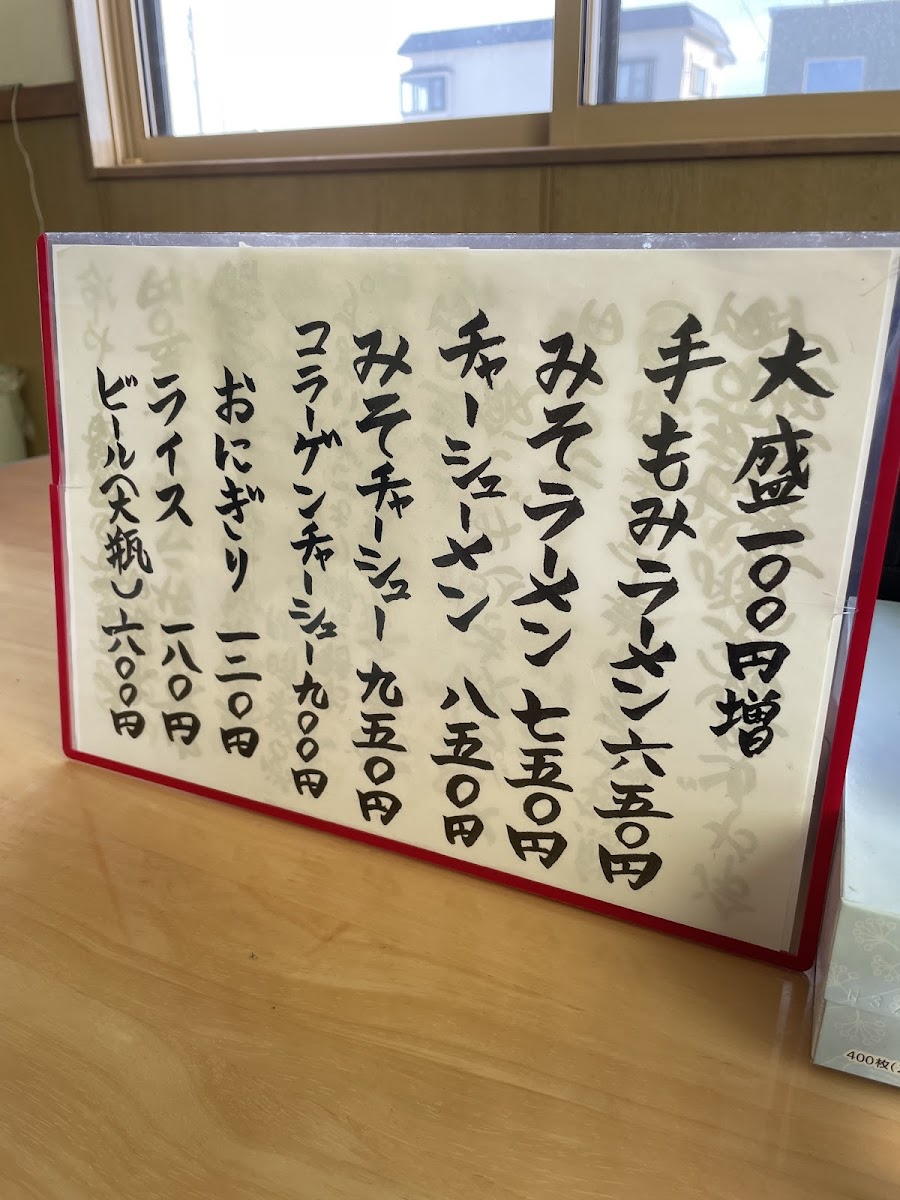 大盛一〇〇円増
手もみラーメン六五〇円
みそラーメン七五〇円
チャーシューメン 八五〇円
みそチャーシュー 九五〇円
コラーゲンチャーシュー九〇〇円
おにぎり 一二〇円
ライス 一八〇円
ビール(大瓶)六〇〇円
400枚(